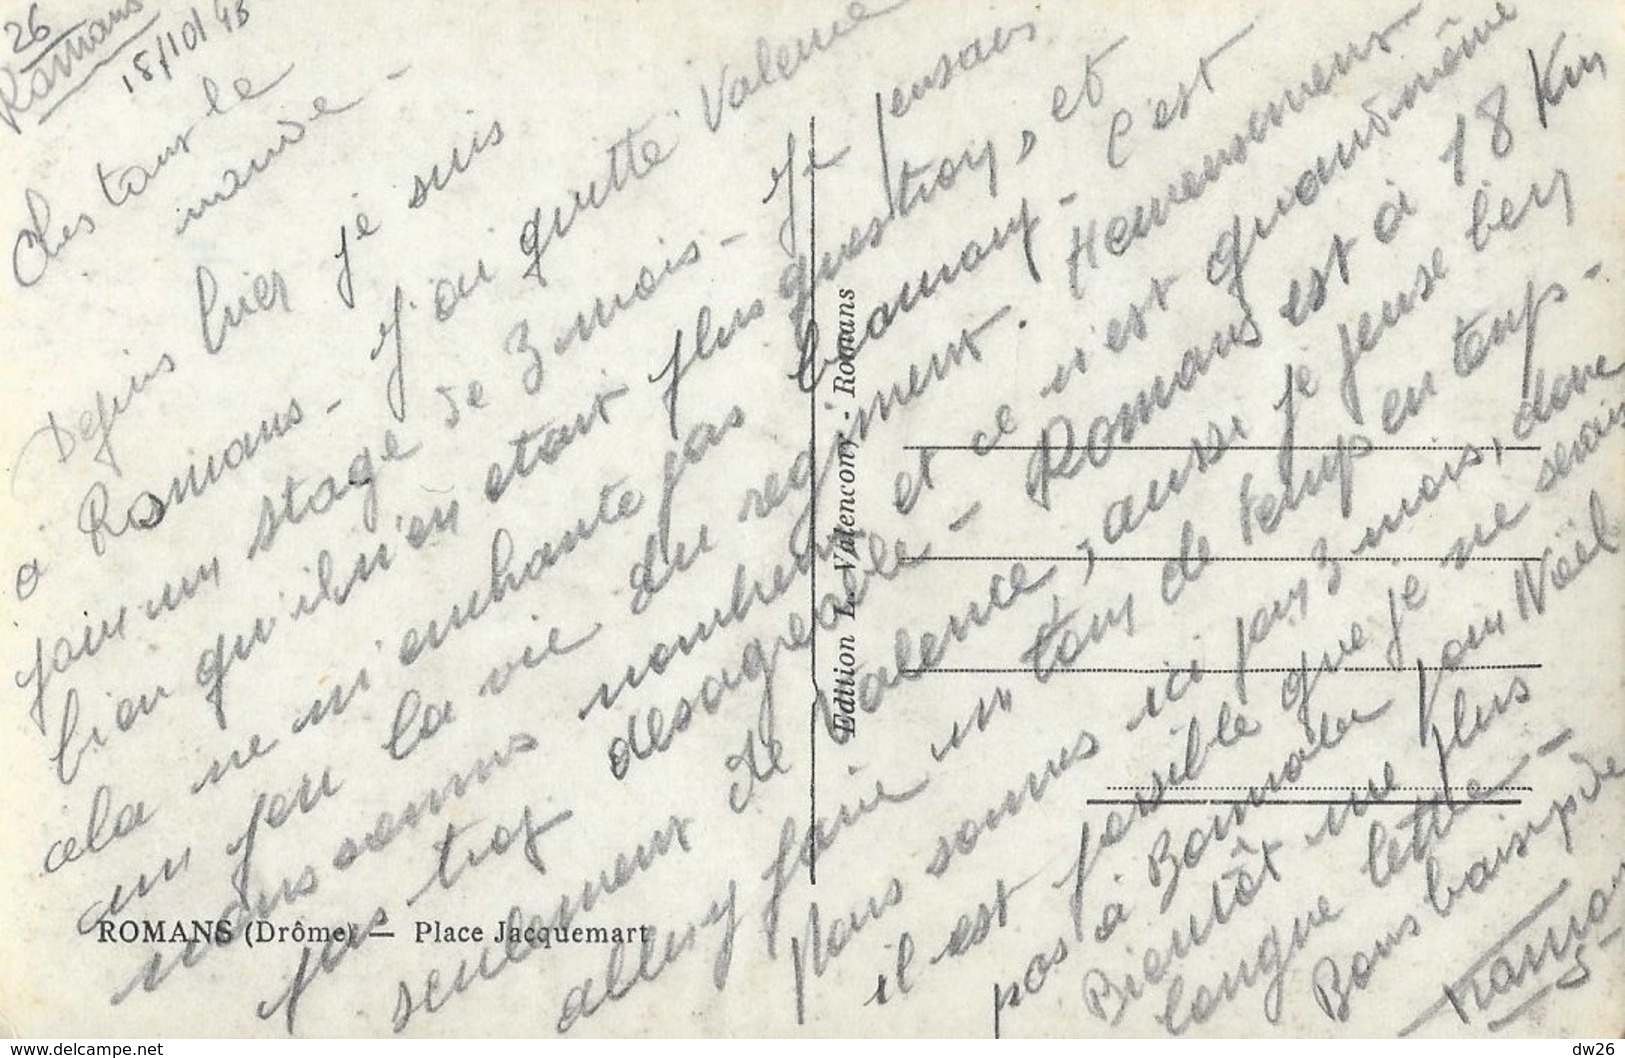 26
Romans
18/10/43
Ches tous le
monde -
Depuis hier je suis
à Romans - J'ai quitté Valence
pour un stage de 3 mois - Je pensais
bien qu'il n'en était plus question, et
cela ne m'enchante pas beaucoup - C'est
un peu la vie du régiment. Heureusement
nous sommes nombreux et ce n'est quand même
pas trop désagréable - Romans est à 18 Km
seulement de Valence, aussi je pense bien
aller y faire un tour de temps en temps -
Nous sommes ici pour 3 mois, donc
il est possible que je ne serais
pas à pour Noël
Bientôt une plus
longue lettre -
Bons baisers de
ROMANS (Drôme) — Place Jacquemart
Edition L. Valencony - Romans
dw26
www.delcampe.net